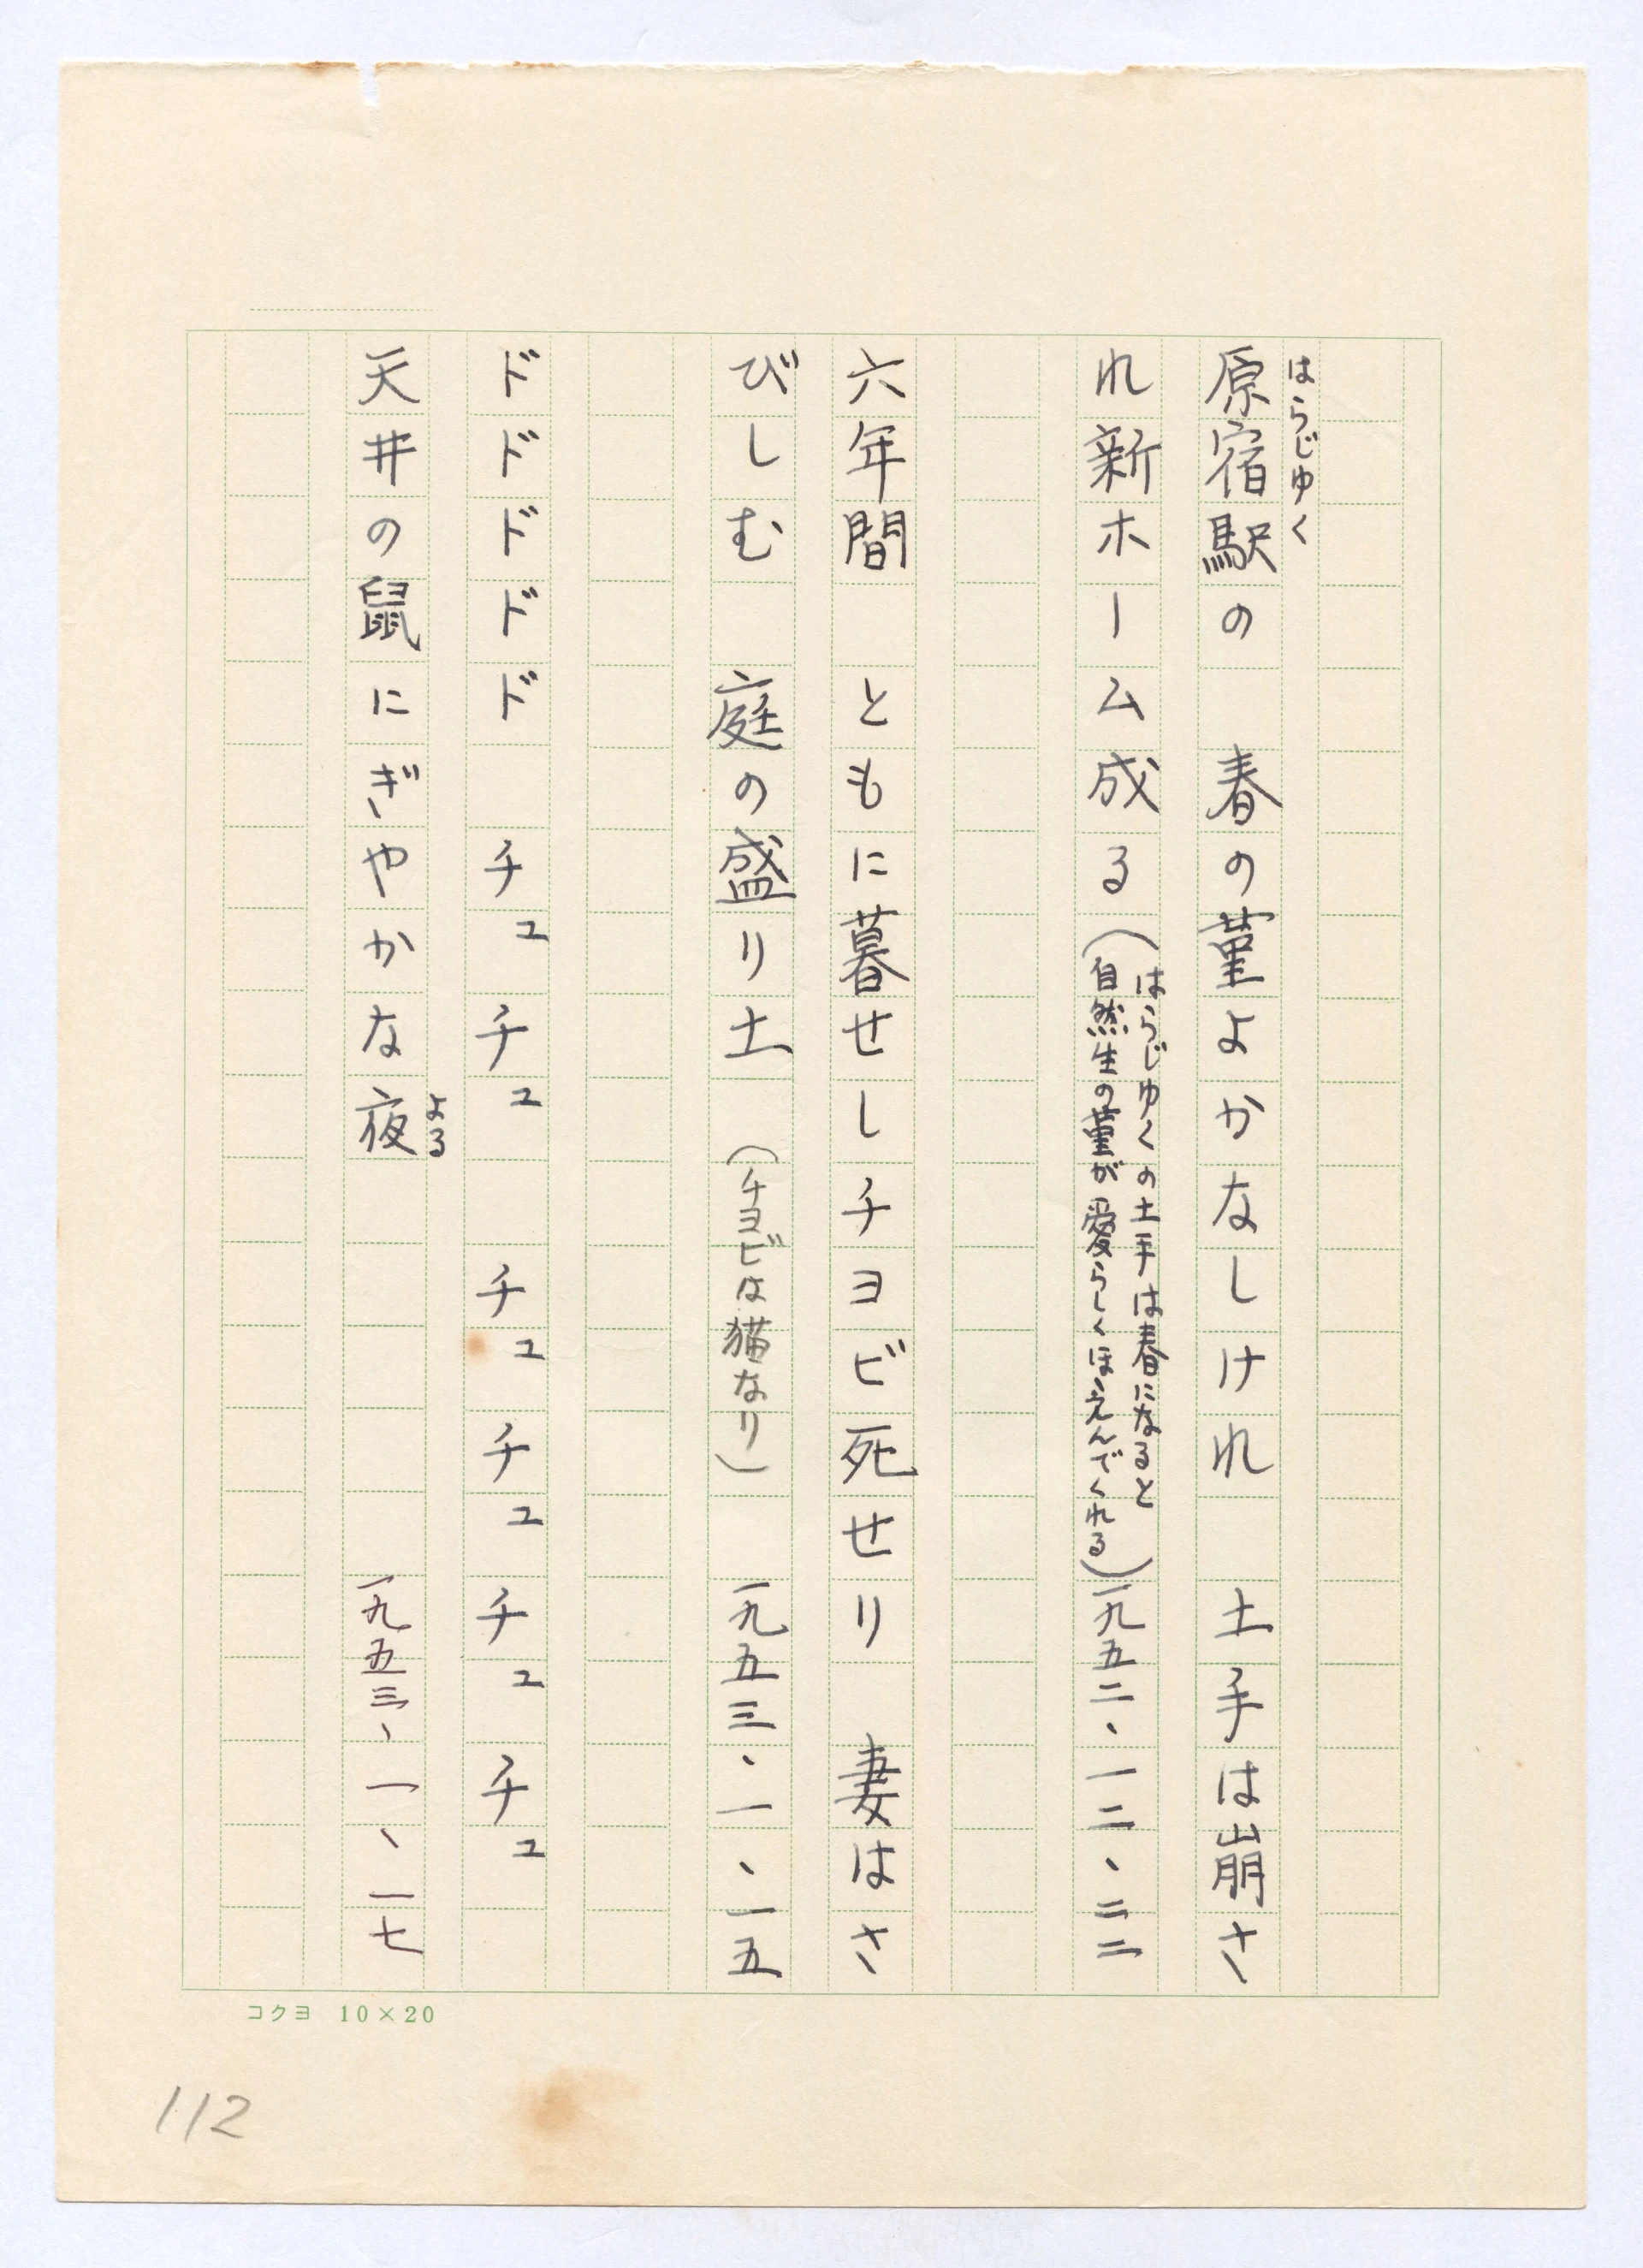 はらじゆく
原宿駅の　春の菫よかなしけれ　土手は崩さ
れ新ホーム成る（はらじゆくの土手は春になると
自然生の菫が愛らしくほゝえんでくれる）一九五二、一二、二二
六年間　ともに暮せしチヨビ死せり　妻はさ
びしむ　庭の盛り土　（チヨビは猫なり）　一九五三、一、一五
ドドドドド　チュチュ　チュチュチュチュ
よる
天井の鼠にぎやかな夜　一九五三、一、一七
コクヨ　10×20
112